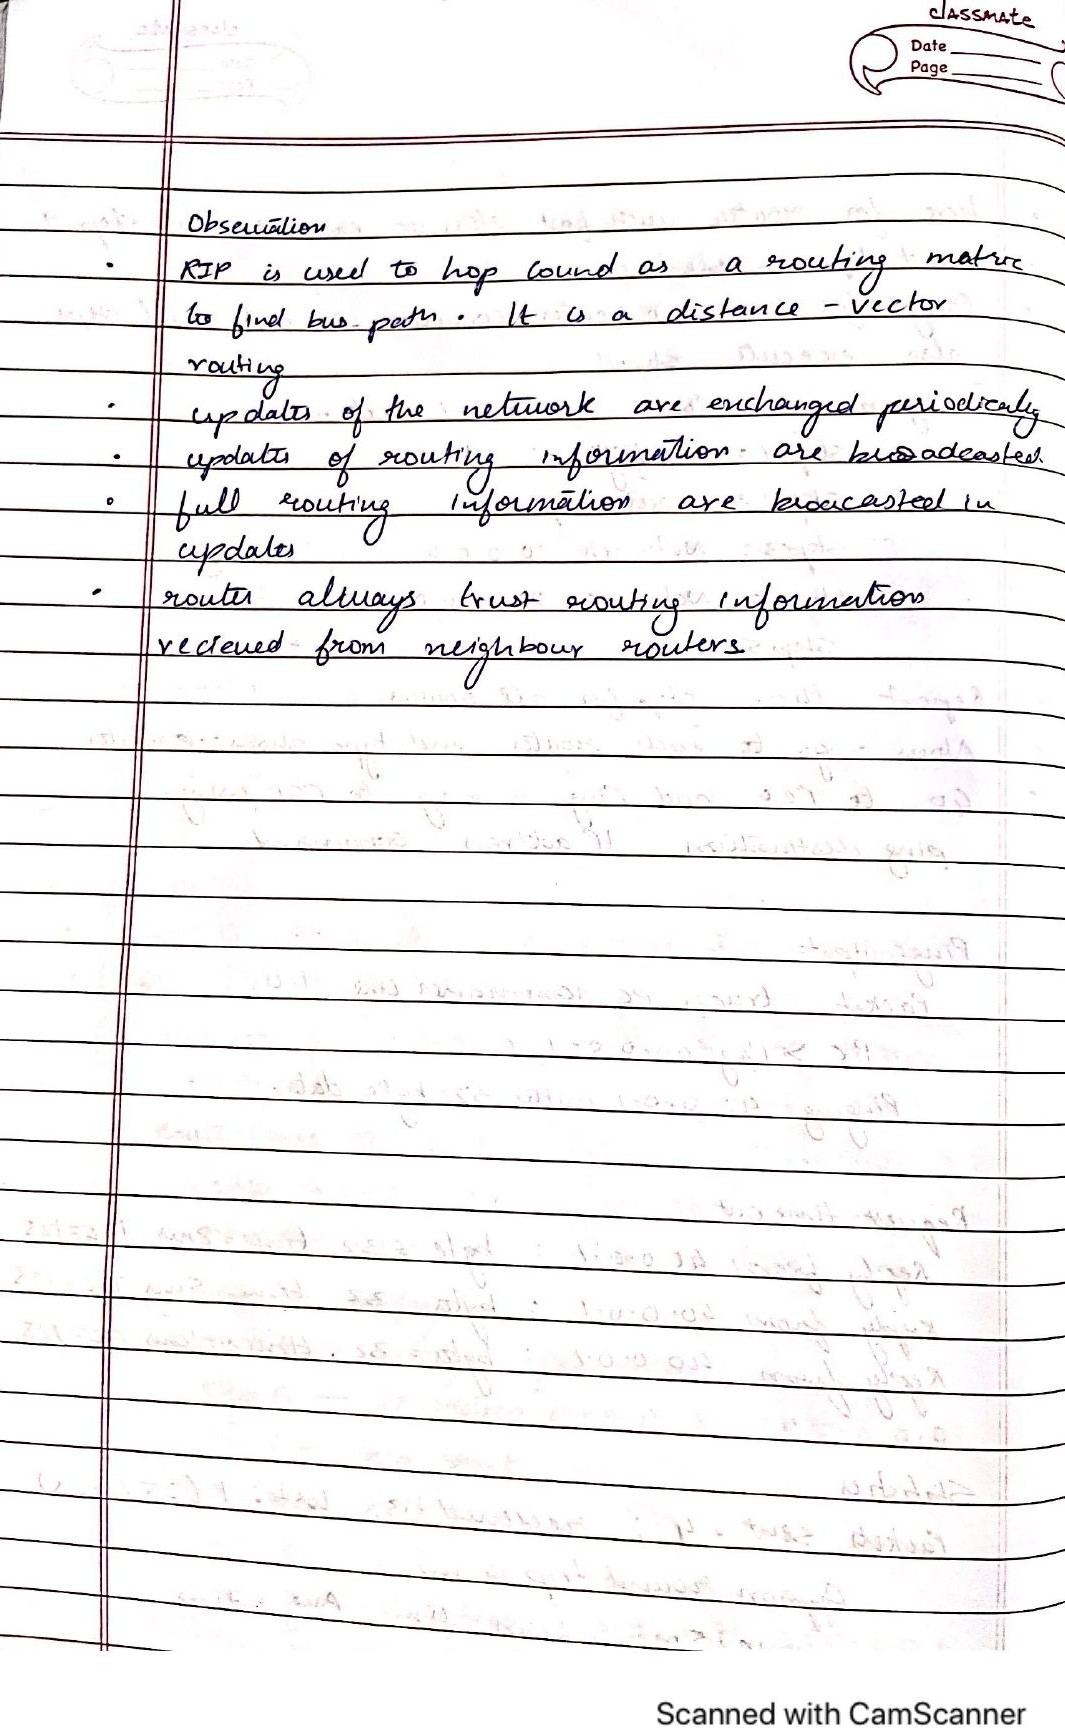 classmate
Date
Page
Observation
• RIP is used to hop cound as a routing matric
to find bus path. It is a distance - vector
routing
• updates of the network are exchanged periodically
• updates of routing information are broadcasted.
• full routing information are broacasted in
updates
• router always trust routing information
recieved from neighbour routers
Scanned with CamScanner